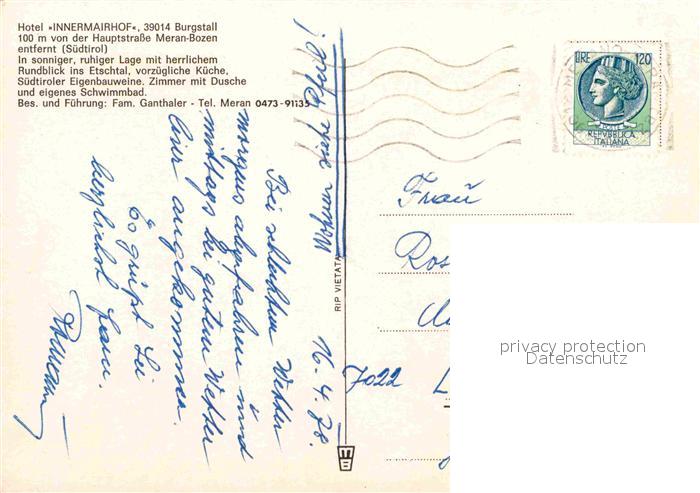 Hotel »INNERMAIRHOF«, 39014 Burgstall
100 m von der Hauptstraße Meran-Bozen
entfernt (Südtirol)
In sonniger, ruhiger Lage mit herrlichem
Rundblick ins Etschtal, vorzügliche Küche,
Südtiroler Eigenbauweine. Zimmer mit Dusche
und eigenes Schwimmbad.
Bes. und Führung: Fam. Ganthaler - Tel. Meran 0473-91135
16.4.78.
Bei schlechtem Wetter
morgens abgefahren und
mittags bei gutem Wetter
hier angekommen.
Es grüßt Sie
herzlichst
RIP VIETATA
LIRE 120
POSTE
REPVBBLICA
ITALIANA
Frau
Ros
7022 L
privacy protection
Datenschutz